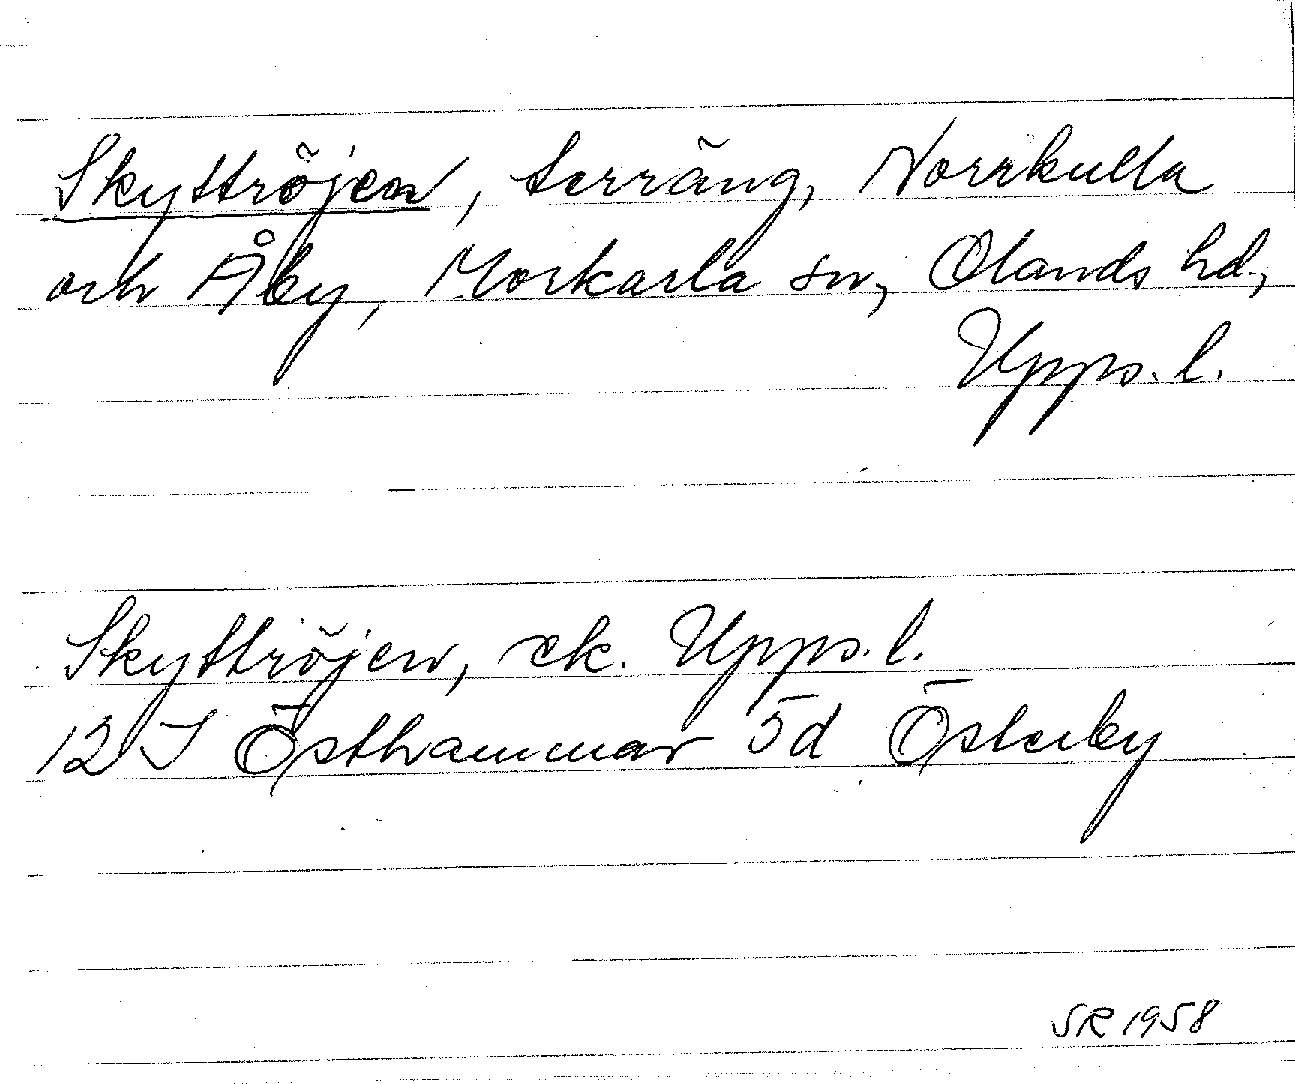 Skyttröjen, terräng, Norrkulla
och Åby, Morkarla sn, Olands hd,
Upps. l.
Skyttröjen, ek. Upps. l.
12 I Östhammar 5d Österby
SR 1958